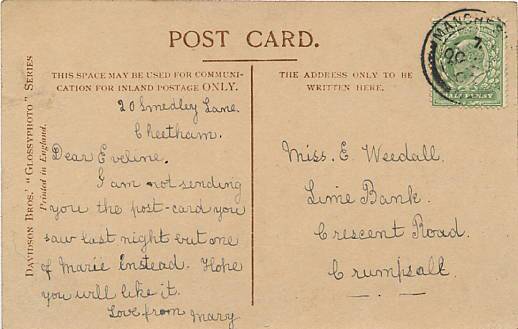 POST CARD.
THIS SPACE MAY BE USED FOR COMMUNI-
CATION FOR INLAND POSTAGE ONLY.
20 Smedley Lane.
Cheetham.
Dear Eveline.
I am not sending
you the post-card you
saw last night but one
of Marie Enstead. Hope
you will like it.
Love from Mary
THE ADDRESS ONLY TO BE
WRITTEN HERE.
Miss. E. Weedall.
Lime Bank.
Crescent Road.
Crumpsall.
MANCHES
7.
HALFPENNY
DAVIDSON BROS.' "GLOSSYPHOTO" SERIES
Printed in England.